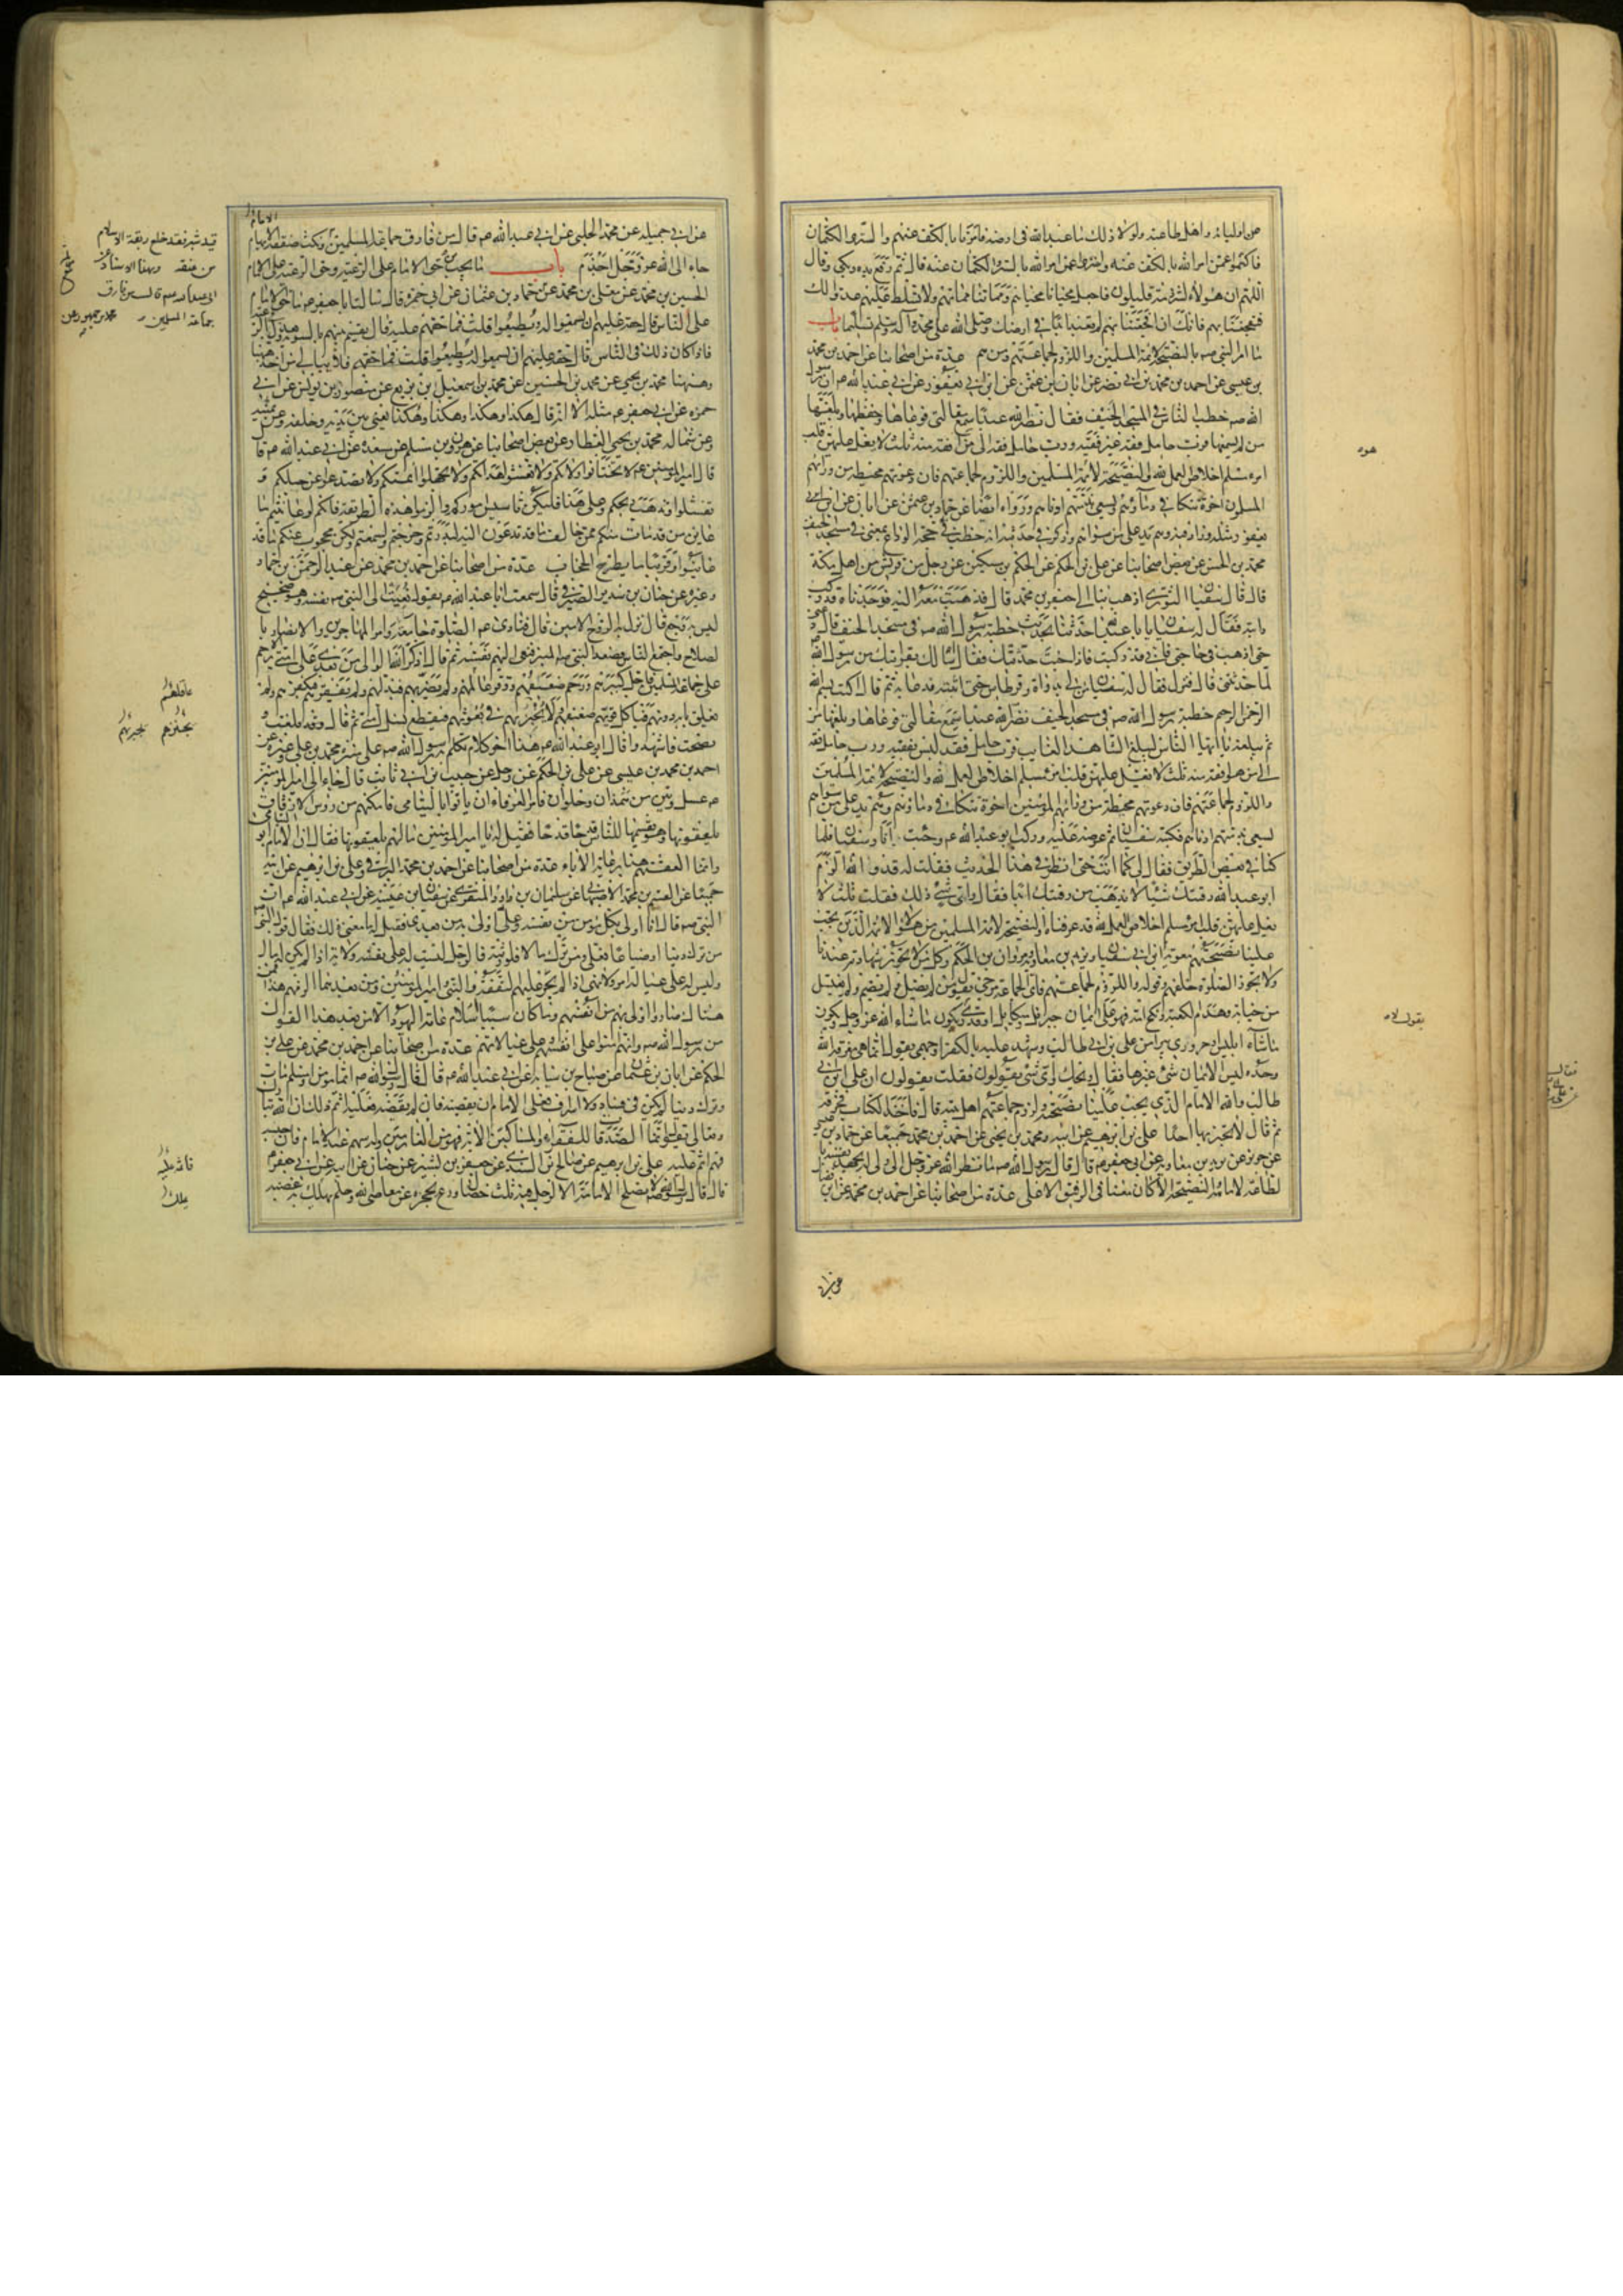 من اوليائه واهل طاعته ولولا ذلك ما عبد الله فى ارضه فامرنا بالكف عنهم والستر والكتمان
فاكتموا عمن امر الله بالكف عنه واستروا عمن امر الله بالستر والكتمان عنه قال ثم رفع يده وبكى وقال
اللهم ان هؤلاء لشرذمة قليلون فاجعل محيانا محياهم ومماتنا مماتهم ولا تسلط عليهم عدوا لك
فتفجعنا بهم فانك ان افجعتنا بهم لم تعبد ابدا فى ارضك وصلى الله على محمد وآله وسلم تسليما باب
ما امر النبى صه بالنصيحة لائمة المسلمين واللزوم لجماعتهم ومن هم عدة من اصحابنا عن احمد بن محمد
بن عيسى عن احمد بن محمد بن ابى نصر عن ابان بن عثمن عن ابن ابى يعفور عن ابى عبد الله ع ان رسول
الله صه خطب الناس فى المسجد الخيف فقال نضر الله عبدا سمع مقالتى فوعاها وحفظها وبلغها
من لم يسمعها فرب حامل فقه غير فقيه ورب حامل فقه الى من هو افقه منه ثلث لا يغل عليهن قلب
امرء مسلم اخلاص العمل لله والنصيحة لائمة المسلمين واللزوم لجماعتهم فان دعوتهم محيطة من ورائهم
المسلمون اخوة تتكافى دماؤهم ويسعى بذمتهم ادناهم ورواه ايضا عن حماد بن عثمن عن ابان عن ابن ابى
يعفور مثله وزاد فيه وهم يد على من سواهم وذكر فى حديثه انه خطب فى حجة الوداع بمنى فى مسجد الخيف
محمد بن الحسن عن بعض اصحابنا عن على بن الحكم عن الحكم بن مسكين عن رجل من قريش من اهل مكة
قال قال سفيان الثورى اذهب بنا الى جعفر بن محمد قال فذهبت معه اليه فوجدناه قد ركب
دابته فقال له سفيان يا با عبد الله حدثنا بحديث خطبة رسول الله صه فى مسجد الخيف قال دعنى
حتى اذهب فى حاجتى فانى قد ركبت فاذا جئت حدثتك فقال اسالك بقرابتك من رسول الله
لما حدثتنى قال فنزل فقال له سفيان مر لى بدواة وقرطاس حتى اثبته فدعا به ثم قال اكتب بسم الله
الرحمن الرحيم خطبة رسول الله صه فى مسجد الخيف نضر الله عبدا سمع مقالتى فوعاها وبلغها من
لم تبلغه يا ايها الناس ليبلغ الشاهد الغايب فرب حامل فقه ليس بفقيه ورب حامل فقه
الى من هو افقه منه ثلث لا يغل عليهن قلب امرئ مسلم اخلاص العمل لله والنصيحة لائمة المسلمين
واللزوم لجماعتهم فان دعوتهم محيطة من ورائهم المؤمنون اخوة تتكافى دماؤهم وهم يد على من سواهم
يسعى بذمتهم ادناهم فكتبه سفيان ثم عرضه عليه وركب ابو عبد الله ع وجئت انا وسفيان فلما
كنا فى بعض الطريق فقال لى كما انت حتى انظر فى هذا الحديث فقلت له قد والله الزم
ابو عبد الله رقبتك شيئا لا يذهب من رقبتك ابدا فقال واى شئ ذلك فقلت ثلث لا
يغل عليهن قلب امرئ مسلم اخلاص العمل لله قد عرفناه والنصيحة لائمة المسلمين من هؤلاء الائمة الذين يجب
علينا نصيحتهم معوية بن ابى سفيان ويزيد بن معاوية ومروان بن الحكم وكل من لا تجوز شهادته عندنا
ولا تجوز الصلوة خلفهم وقوله واللزوم لجماعتهم فاى الجماعة مرجئ يقول من لم يصل ولم يصم ولم يغتسل
من جنابة وهدم الكعبة ونكح امه فهو على ايمان جبرئيل وميكائيل او قدرى يقول لا يكون ما شاء الله عز وجل ويكون
ما شاء ابليس او حرورى يبرأ من على بن ابى طالب وشهد عليه بالكفر او جهمى يقول انما هى معرفة الله
وحده ليس الايمان شئ غيرها فقال ويحك واى شئ يقولون فقلت يقولون ان على بن ابى
طالب والله الامام الذى يجب علينا نصيحته ولزوم جماعتهم اهل بيته قال فاخذ الكتاب فخرقه
ثم قال لا تخبر بها احدا على بن ابرهيم عن ابيه ومحمد بن يحيى عن احمد بن محمد جميعا عن حماد بن عيسى
عن حريز عن بريد بن معاوية عن ابى جعفر ع قال قال رسول الله صه ما نظر الله عز وجل الى ولى له يجهد نفسه با
لطاعة لامامه والنصيحة الا كان معنا فى الرفيق الاعلى عدة من اصحابنا عن احمد بن محمد عن ابن فضال
هوه
يقول لا
عن ابى جميلة عن محمد الحلبى عن ابى عبد الله ع قال من فارق جماعة المسلمين ونكث صفقة الابهام
جاء الى الله عز وجل اجذم باب ما يجب من حق الامام على الرعية وحق الرعية على الامام
الحسين بن محمد عن معلى بن محمد عن حماد بن عثمان عن ابى حمزة قال سالت ابا جعفر ع ما حق الامام
على الناس قال حقه عليهم ان يسمعوا له ويطيعوا قلت فما حقهم عليه قال يقسم بينهم بالسوية ويعدل فى الرعية
فاذا كان ذلك فى الناس قال حقه عليهم ان يسمعوا له ويطيعوا قلت فما حقهم فلا يبالى من اخذ ههنا
وههنا محمد بن يحيى عن محمد بن الحسين عن محمد بن اسمعيل بن بزيع عن منصور بن يونس عن ابى
حمزة عن ابى جعفر ع مثله الا انه قال هكذا وهكذا وهكذا وهكذا يعنى من بين يديه وخلفه وعن يمينه
وعن شماله محمد بن يحيى العطار وعن بعض اصحابنا عن هرون بن مسلم عن مسعدة عن ابى عبد الله ع قال
قال امير المؤمنين ع لا تختانوا ولاتكم ولا تغشوا هداتكم ولا تجهلوا ائمتكم ولا تصدعوا عن حبلكم فـ
تفشلوا وتذهب ريحكم وعلى هذا فليكن تاسيس اموركم والزموا هذه الطريقة فانكم لو عاينتم ما
عاين من قد مات منكم ممن خالف ما قد تدعون اليه لبدرتم وخرجتم ولسمعتم ولكن محجوب عنكم ما قد
عاينوا وقريبا ما يطرح الحجاب عدة من اصحابنا عن احمد بن محمد عن عبد الرحمن بن حماد
وغيره عن حنان بن سدير الصيرفى قال سمعت ابا عبد الله ع يقول نعيت الى النبى صه نفسه وهو صحيح
ليس به وجع قال نزل به الروح الامين قال فنادى ع الصلوة جامعة وامر المهاجرين والانصار با
لسلاح واجتمع الناس فصعد النبى صه المنبر فنعى اليهم نفسه ثم قال اذكر الله الوالى من بعدى على امتى الا يرحم
على جماعة المسلمين فاجل كبيرهم ورحم ضعيفهم ووقر عالمهم ولم يضر بهم فيذلهم ولم يفقرهم فيكفرهم ولم
يغلق بابه دونهم فياكل قويهم ضعيفهم ولم يخبزهم فى بعوثهم فيقطع نسل امتى ثم قال قد بلغت و
نصحت فاشهدوا قال ابو عبد الله ع هذا اخر كلام تكلم به رسول الله صه على منبره محمد بن على وغيره عن
احمد بن محمد بن عيسى عن على بن الحكم عن رجل عن حبيب بن ابى ثابت قال جاء الى امير المؤمنين
ع عسل وتين من همدان وحلوان فامر العرفاء ان ياتوا باليتامى فامكنهم من رؤس الازقاق
يلعقونها وهو يقسمها للناس قدحا قدحا فقيل له يا امير المؤمنين ما لهم يلعقونها فقال ان الامام ابو اليتامى
وانما العقتهم هذا برعاية الاباء عدة من اصحابنا عن احمد بن محمد البرقى وعلى بن ابرهيم عن ابيه
جميعا عن القسم بن محمد الاصبهانى عن سليمان بن داود المنقرى عن سفيان بن عيينة عن ابى عبد الله ع ان
النبى صه قال انا اولى بكل مؤمن من نفسه وعلى اولى به من بعدى فقيل له ما معنى ذلك فقال قول النبى صه
من ترك دينا او ضياعا فعلى ومن ترك مالا فلورثته فالرجل ليست له على نفسه ولاية اذا لم يكن له مال
وليس له على عياله امر ولا نهى اذا لم يجر عليهم النفقة والنبى وامير المؤمنين ومن بعدهما الزمهم هذا فمن
هناك صاروا اولى بهم من انفسهم وما كان سبب اسلام عامة اليهود الا من بعد هذا القول
من رسول الله صه وانهم امنوا على انفسهم وعلى عيالاتهم عدة من اصحابنا عن احمد بن محمد عن على بن
الحكم عن ابان بن عثمان عن صباح بن سيابة عن ابى عبد الله ع قال قال رسول الله صه ايما مؤمن او مسلم مات
وترك دينا لم يكن فى فساد ولا اسراف فعلى الامام ان يقضيه فان لم يقضه فعليه اثم ذلك ان الله تبارك
وتعالى يقول انما الصدقات للفقراء والمساكين الاية فهو من الغارمين وله سهم عند الامام فان حبسه
فهو اثم عليه على بن ابرهيم عن صالح بن السندى عن جعفر بن بشير عن حنان عن ابيه عن ابى جعفر ع
قال قال رسول الله صه لا يصلح الامامة الا لرجل فيه ثلث خصال ورع يحجزه عن معاصى الله وحلم يملك به غضبه
الامام
قيد شبر فقد خلع ربقة الاسلام
من عنقه وبهذا الاسناد عن
ابى عبد الله ع قال من فارق
جماعة المسلمين